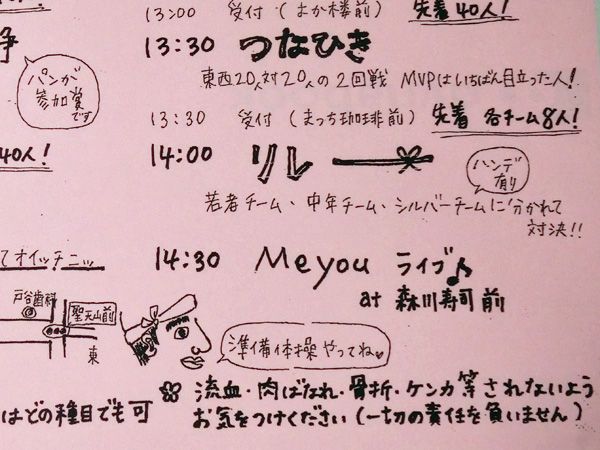 13:00 受付(まか楼前) 先着40人!
争
13:30 つなひき
パンが
参加賞
です
東西20人対20人の2回戦 MVPはいちばん目立った人!
13:30 受付(まっち珈琲前) 先着 各チーム8人!
40人!
14:00 リレー
ハンデ
有り
若者チーム、中年チーム、シルバーチームに分かれて
対決!!
てオイッチニッ
14:30 Meyou ライブ♪
at 森川寿司前
戸谷歯科
聖天山前
東
準備体操やってね♥
流血・肉ばなれ・骨折・ケンカ等されないよう
はどの種目でも可
お気をつけください(一切の責任を負いません)